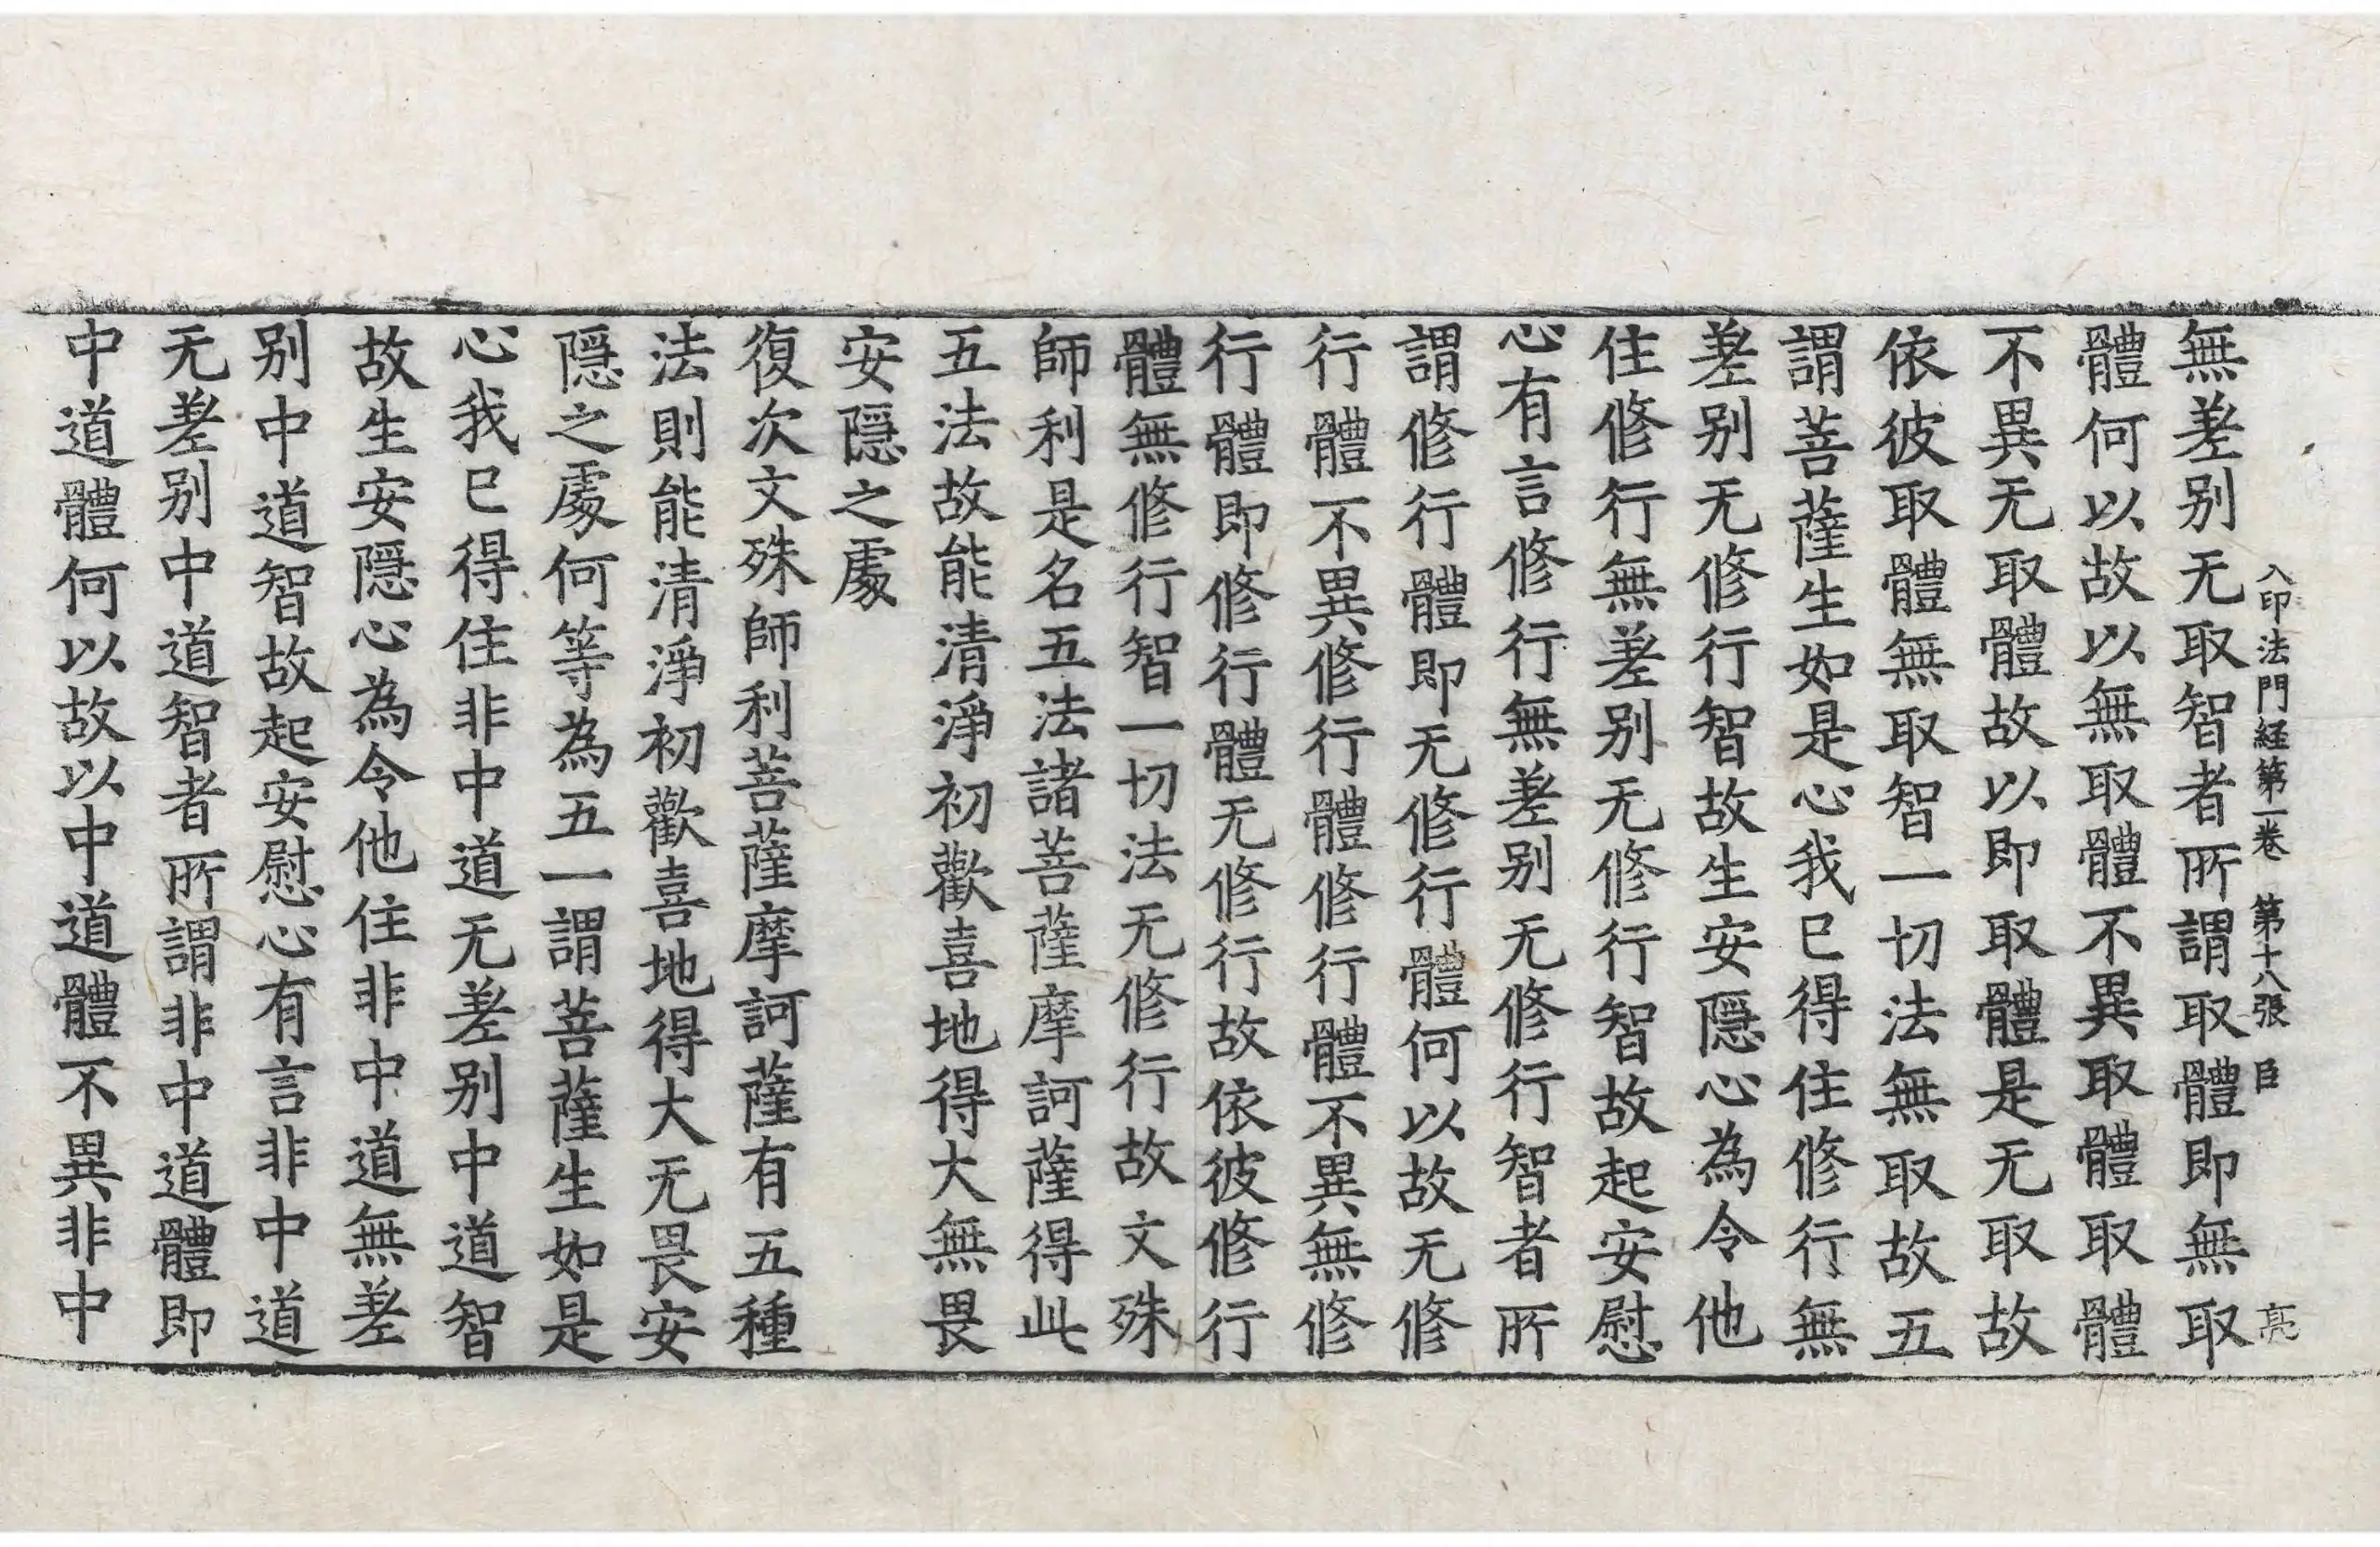 入印法門経第一卷　第十八張　臣　亮
無差别无取智者所謂取體即無取
體何以故以無取體不異取體取體
不異无取體故以即取體是无取故
依彼取體無取智一切法無取故五
謂菩薩生如是心我已得住修行無
差别无修行智故生安隱心為令他
住修行無差别无修行智故起安慰
心有言修行無差别无修行智者所
謂修行體即无修行體何以故无修
行體不異修行體修行體不異無修
行體即修行體无修行故依彼修行
體無修行智一切法无修行故文殊
師利是名五法諸菩薩摩訶薩得此
五法故能清淨初歡喜地得大無畏
安隱之處
復次文殊師利菩薩摩訶薩有五種
法則能清淨初歡喜地得大无畏安
隱之處何等為五一謂菩薩生如是
心我已得住非中道无差别中道智
故生安隱心為令他住非中道無差
别中道智故起安慰心有言非中道
无差别中道智者所謂非中道體即
中道體何以故以中道體不異非中